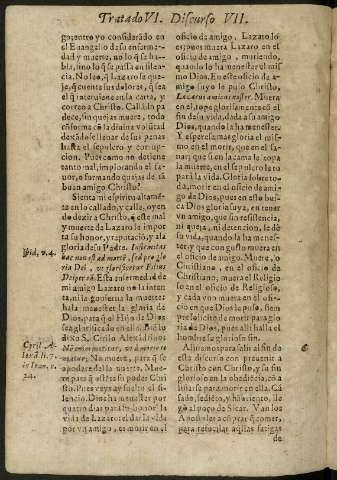 Tratado VI. Discurso VII.
go; entro yo considerádo en
el Euangelio de su enferme-
dad y muerte, no lo q̃ se ha-
bla, sino lo q̃ se passa en silen-
cia. No leo, q̃ Lazaro se que-
je, q̃ cuente sus dolores, q̃ sea
el q̃ interuiene en la carta, y
correo a Christo. Calla lo pa
dece, sin quejas muere, todo
cõforme cõ la diuina volútad
dexádose lleuar de sus penas
hasta el sepulcro y corrup-
cion. Pues como no detiene
tanto mal, implorando el fa-
uor, o formando quejas de tã
buen amigo Christo?
Sienta mi espiritu altamé-
te en lo callado, y calle, oyen
do dezir a Christo, q̃ este mal
y muerte de Lazaro le impor
ta su honor, y reputaciõ, y a la
gloria de su Padre. Infirmitas
hæc non est ad mortẽ, sed pro glo
ria Dei, vt glorificetur Filius
Dei per eã. Esta enfermedad de
mi amigo Lazaro no la inten
ta, ni la gouierna la muerte:
hala menester la gloria de
Dios, para q̃ el Hijo de Dios
sea glorificado en ella. Biẽ lo
dixo S. Cirilo Alexãdrino:
matur. No muere, para q̃ se
apodere della la muerte. Mue-
re para q̃ assiste su poder Chri
sto. Pues vaya de vuelto el si-
lencio. Dize ha menester por
quatro dias para su honor la
vida de Lazaro: el dar la vida
por vn amigo, es morir en el
oficio de amigo. Lazaro lo
es; pues muera Lazaro en el
oficio de amigo, muriendo,
quando lo ha menester el mis
mo Dios. En este oficio de a-
migo suyo le puso Christo,
Lazarus amicus noster. Muera
en el, tope gloriosamente cõ el
fin de su vida, dada a su amigo
Dios, quando la ha menester.
Y espere la mesma gloria el mis-
mo en el morir, que en el sa-
nar; que si en la cama le topa
la muerte, en el sepulcro le to
pará la vida. Gloria sobre to-
da, morir en el oficio de ami-
go de Dios, pues en esto bus-
ca Dios gloria suya, en tener
vn amigo, que sin resistencia,
ni queja, ni detencion, le dè
su vida, quando la ha menes-
ter, y que con gusto muera en
el oficio de amigo. Muere, o
Christiano, en el oficio de
Christiano; muera el Religio
so en el oficio de Religioso,
y cada vno muera en el ofi-
cio en que Dios lo puso, sem
pre solicito de morir para glo
ria de Dios, pues alli halla el
hombre su glorioso fin.
Ahincamonos salir al fin de
este discurso con preuenir a
Christo con Christo, y su fin
glorioso en la obediẽcia, cõ a
listarse para morir en ella. Cã
sado, sediẽto, y hãbriento, lle
gò al poço de Sicar. Van los
Apostoles a cõprar q̃ comer,
para refocilar aquellas fatigas
de
Ibid. v. 4.
Cyril. A-
lexã. li. 7.
in Ioan. c.
24.
6